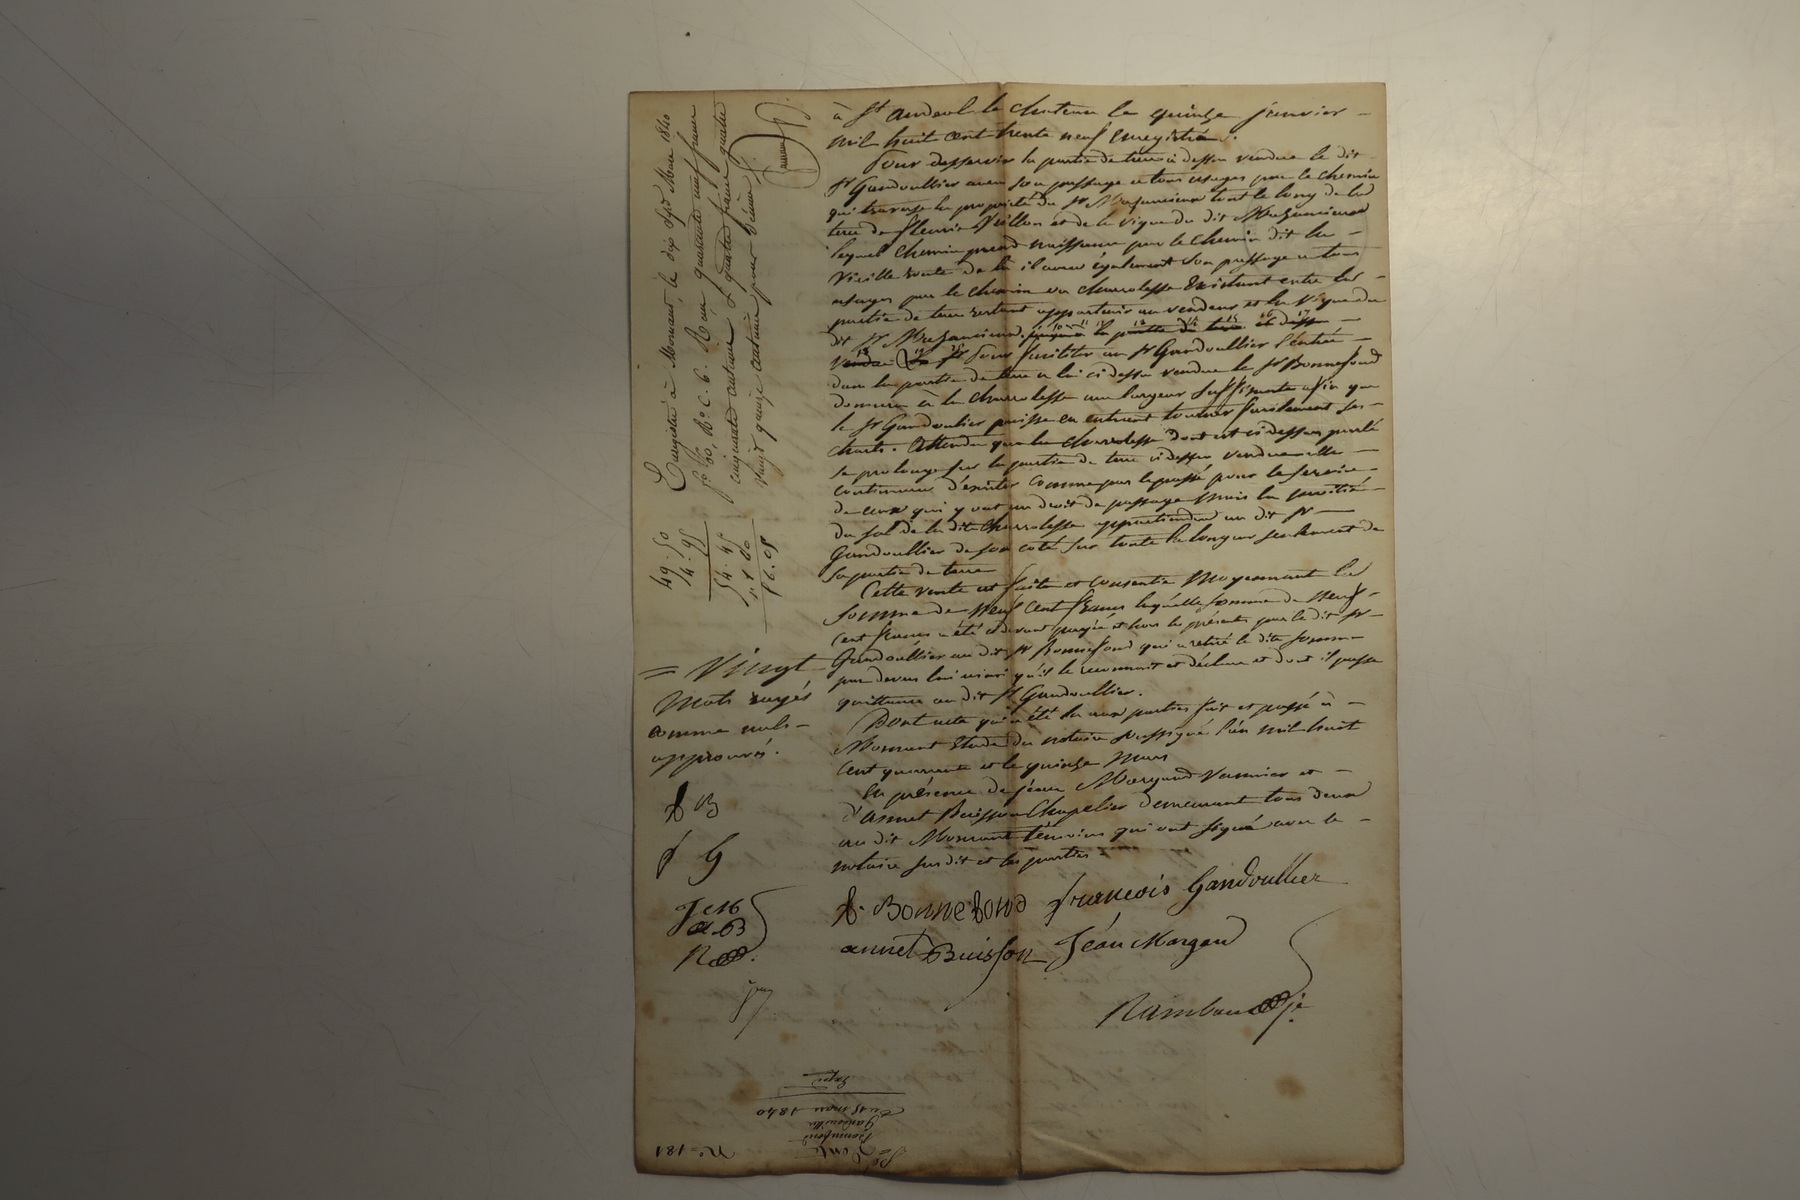 à St andéol le chateau le quinze janvier
mil huit cent trente neuf enregistré.
Pour desservir la partie de terre ci dessus vendue le dit
Sr Gandoullier aura son passage a tous usages par le chemin
qui traverse la propriété du Sr tout le long de la
terre de fleurie et de la vigne du dit
lequel chemin prend naissance par le chemin dit la
Vieille route de là il aura également son passage a tous
usages par le chemin ou charrolesse Existant entre la
partie de terre restant appartenir au vendeur et la vigne du
dit Sr la partie de terre ci dessus
vendue Le Sr Pour faciliter au Sr Gandoullier l'entrée
dans la partie de terre a lui ci dessus vendue le Sr Bonnefond
donnera à la charrolesse une largeur suffisante afin que
le Sr Gandoulier puisse en entrant tourner facilement ses
charts. Attendu que la charrolesse dont est ci dessus parlé
se prolonge sur la partie de terre ci dessus vendue elle
continuera d'exister comme par le passé pour le service
de ceux qui y ont un droit de passage mais la moitié
du sol de la dite charrolesse appartiendra au dit Sr
Gandoullier de son coté sur toute la longueur seulement de
sa partie de terre
Cette vente est faite et consentie Moyennant la
somme de Neuf Cent francs laquelle somme de Neuf
cent francs a été ci devant payée et hors les présentes par le dit Sr
Gandoullier au dit Sr Bonnefond qui a retiré la dite somme
par devers lui ainsi qu'il le reconnait et déclare et dont il passe
quittance au dit Sr Gandoullier.
Dont acte qui a été lu aux parties fait et passé à
Mornant Etude du notaire soussigné l'an mil huit
cent quarante et le quinze Mars
En présence de Jean Morgand Vannier et
d'annet Buisson Chapelier demeurant tous deux
au dit Mornant témoins qui ont signé avec le
notaire susdit et les parties
f. Bonnefond françois Gandoullier
annet Buisson Jean Morgand
Rambaud
Enregistré à Mornant, le dix sept Mars 1840
fo 60, Ro C. 6. Reçu quarante neuf francs
cinquante centimes & quatre francs quatre
vingt quinze centimes pour décime
49.50
4.95
54.45
1 60
56.05
= Vingt
Mots rayés
comme nuls
approuvés.
f B
f G
J M
a. B
R
No = 181
Vente
Bonnefond
Gandoullier
Du 15 mars 1840
Expé